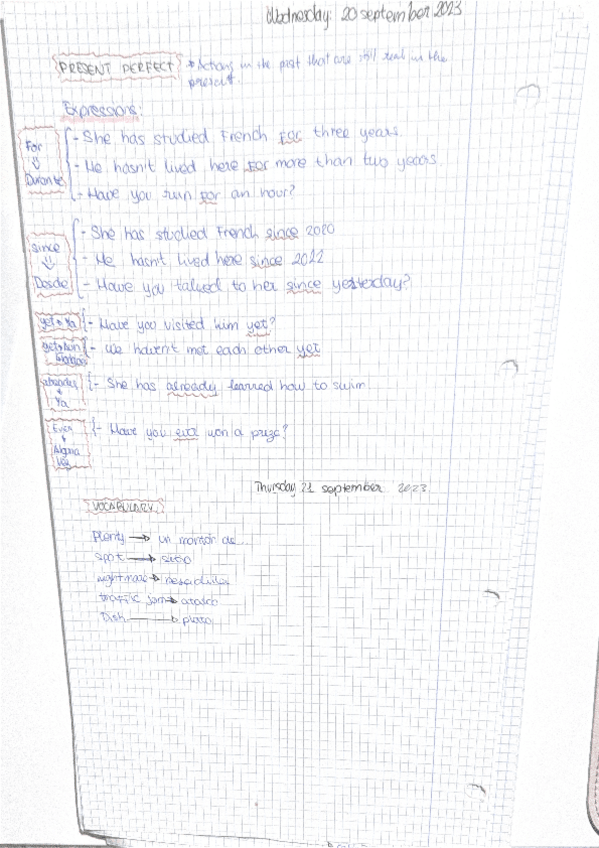 Wednesday: 20 september 2023
PRESENT PERFECT * Actions in the past that are still real in the
present.
Expressions:
For
Durante
- She has studied French for three years.
- He hasn't lived here for more than two years.
- Have you run for an hour?
since
Desde
- She has studied French since 2020
- He hasn't lived here since 2022
- Have you talked to her since yesterday?
yet → Ya - Have you visited him yet?
yet → Aún - We haven't met each other yet
already
Ya
- She has already learned how to swim
Ever
Alguna
Vez
- Have you ever won a prize?
Thursday 21 september 2023.
VOCABULARY
Plenty → un montón de
spot → sitio
nightmare → pesadilla
traffic jam → atasco
Dish → plato